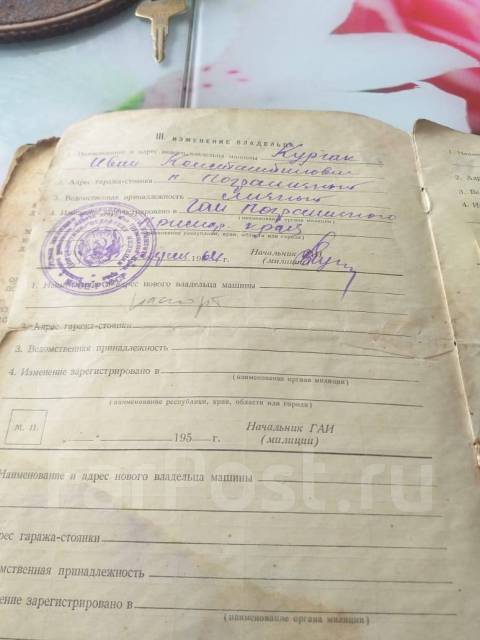 III. ИЗМЕНЕНИЕ ВЛАДЕЛЬЦА
1. Наименование и адрес нового владельца машины Курган
Иван Константинович
2. Адрес гаража-стоянки п. Пограничный
3. Ведомственная принадлежность личный
4. Изменение зарегистрировано в ГАИ Пограничного
(наименование органа милиции)
Примор. края
(наименование республики, края, области или города)
196 Начальник ГАИ
(милиции)
1. Наименование и адрес нового владельца машины
паспорт
2. Адрес гаража-стоянки
3. Ведомственная принадлежность
4. Изменение зарегистрировано в
(наименование органа милиции)
(наименование республики, края, области или города)
М. П. „ “ 195 г. Начальник ГАИ
(милиции)
Наименование и адрес нового владельца машины
рес гаража-стоянки
омственная принадлежность
ение зарегистрировано в
(наименование органа милиции)
FarPost.ru